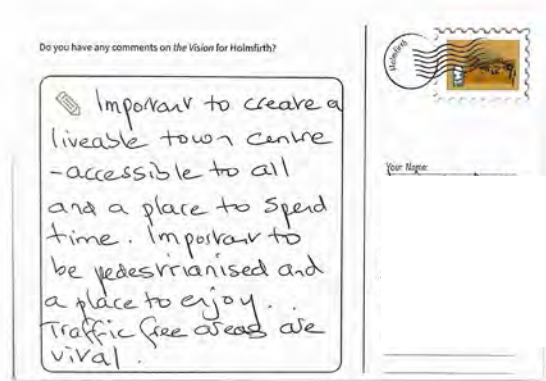 Do you have any comments on the Vision for Holmfirth?
Important to create a
liveable town centre
-accessible to all
and a place to spend
time. Important to
be pedestrianised and
a place to enjoy.
Traffic free areas are
vital.
Holmfirth
Your Name: